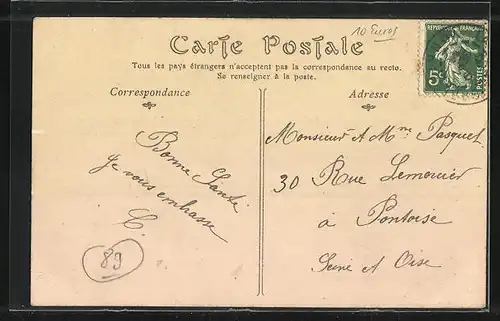 10 Euros
Carte Postale
Tous les pays étrangers n'acceptent pas la correspondance au recto.
Se renseigner à la poste.
RÉPUBLIQUE FRANÇAISE
5c
POSTES
Correspondance
Adresse
Bonne Santé
Je vous embrasse
C.
89
Monsieur et Mme Pasquet
30 Rue Lemercier
à Pontoise
Seine et Oise